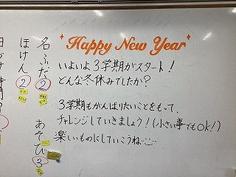 "Happy New Year"
いよいよ3学期がスタート!
どんな冬休みでしたか?
3学期もがんばりたいことをもって、
チャレンジしていきましょう!(小さい事でもOK!)
楽しいものにしていこうね
名ふだ②
あそび③
ほけん②